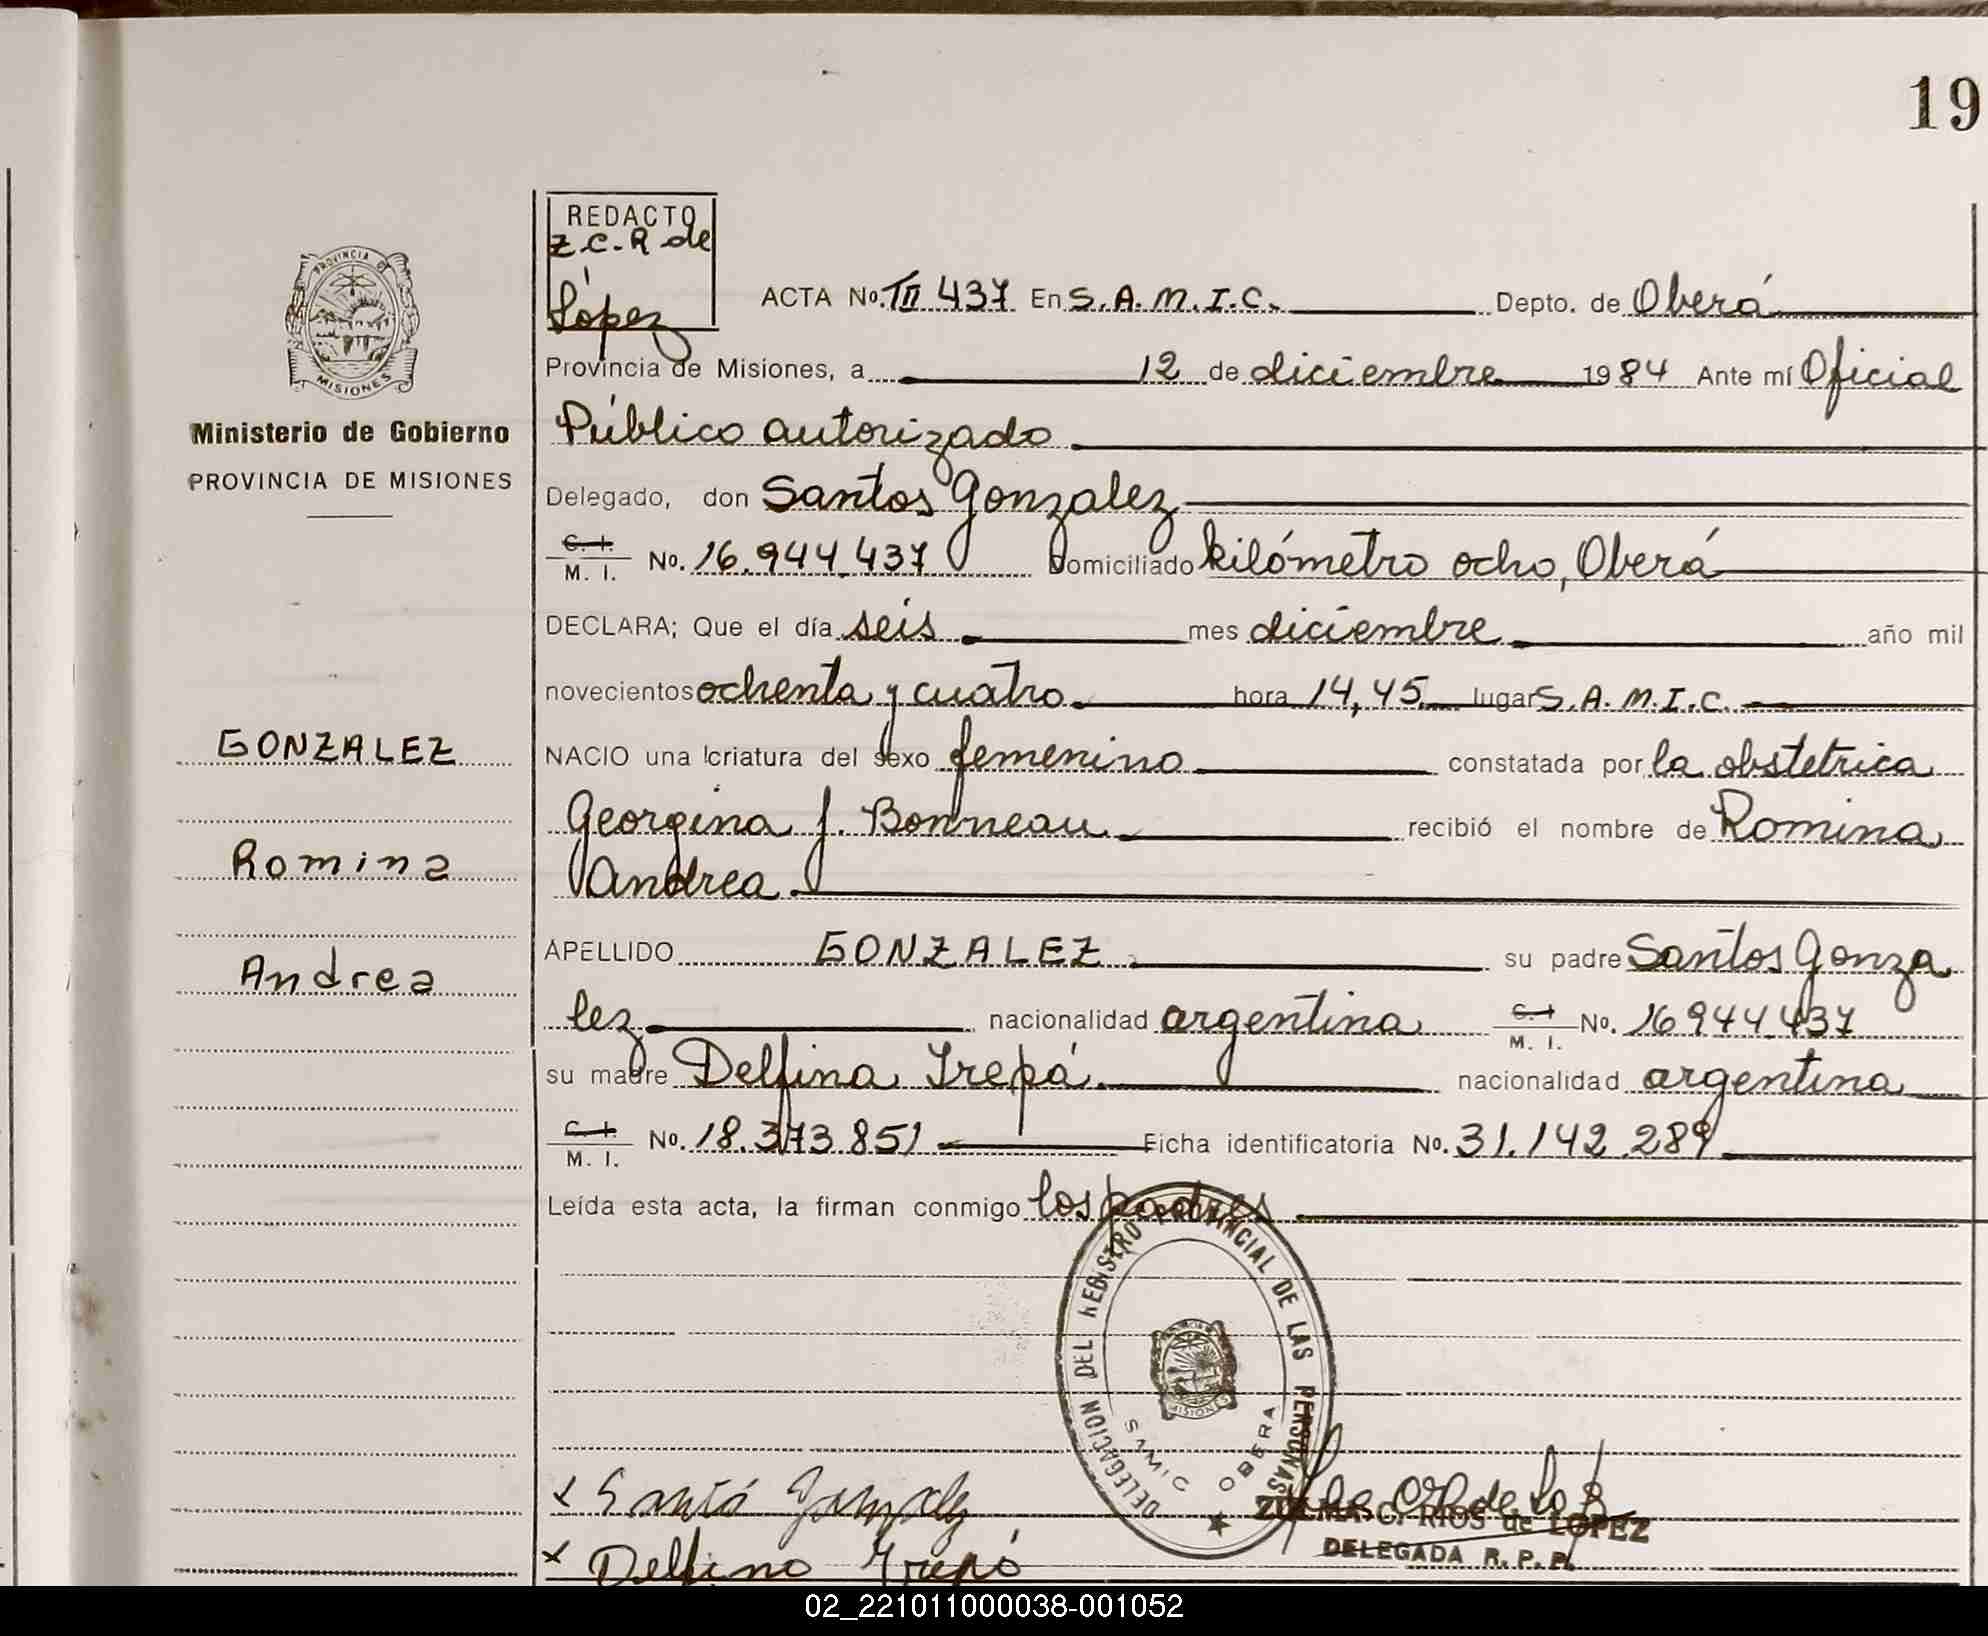 19
REDACTO
Z.C.R de
López
PROVINCIA DE
MISIONES
Ministerio de Gobierno
PROVINCIA DE MISIONES
GONZALEZ
Romina
Andrea
ACTA No. III 437 En S.A.M.I.C. Depto. de Oberá
Provincia de Misiones, a 12 de diciembre 1984 Ante mí Oficial
Público autorizado
Delegado, don Santos Gonzalez
C. I.
M. I. No. 16.944.437 Domiciliado kilómetro ocho, Oberá
DECLARA; Que el día seis mes diciembre año mil
novecientos ochenta y cuatro hora 14,45 lugar S.A.M.I.C.
NACIO una criatura del sexo femenino constatada por la obstetrica
Georgina J. Bonneau recibió el nombre de Romina
Andrea
APELLIDO GONZALEZ su padre Santos Gonza
lez nacionalidad argentina C. I. M. I. No. 16944.437
su madre Delfina Trepá nacionalidad argentina
C. I.
M. I. No. 18.373.851 Ficha identificatoria No. 31.142.289
Leída esta acta, la firman conmigo los padres
DELEGACION DEL REGISTRO PROVINCIAL DE LAS PERSONAS
SAMIC OBERA
Santo Gonzalez
ZULMA C. RIOS de LOPEZ
DELEGADA R. P. P.
Delfino Trepó
02_221011000038-001052